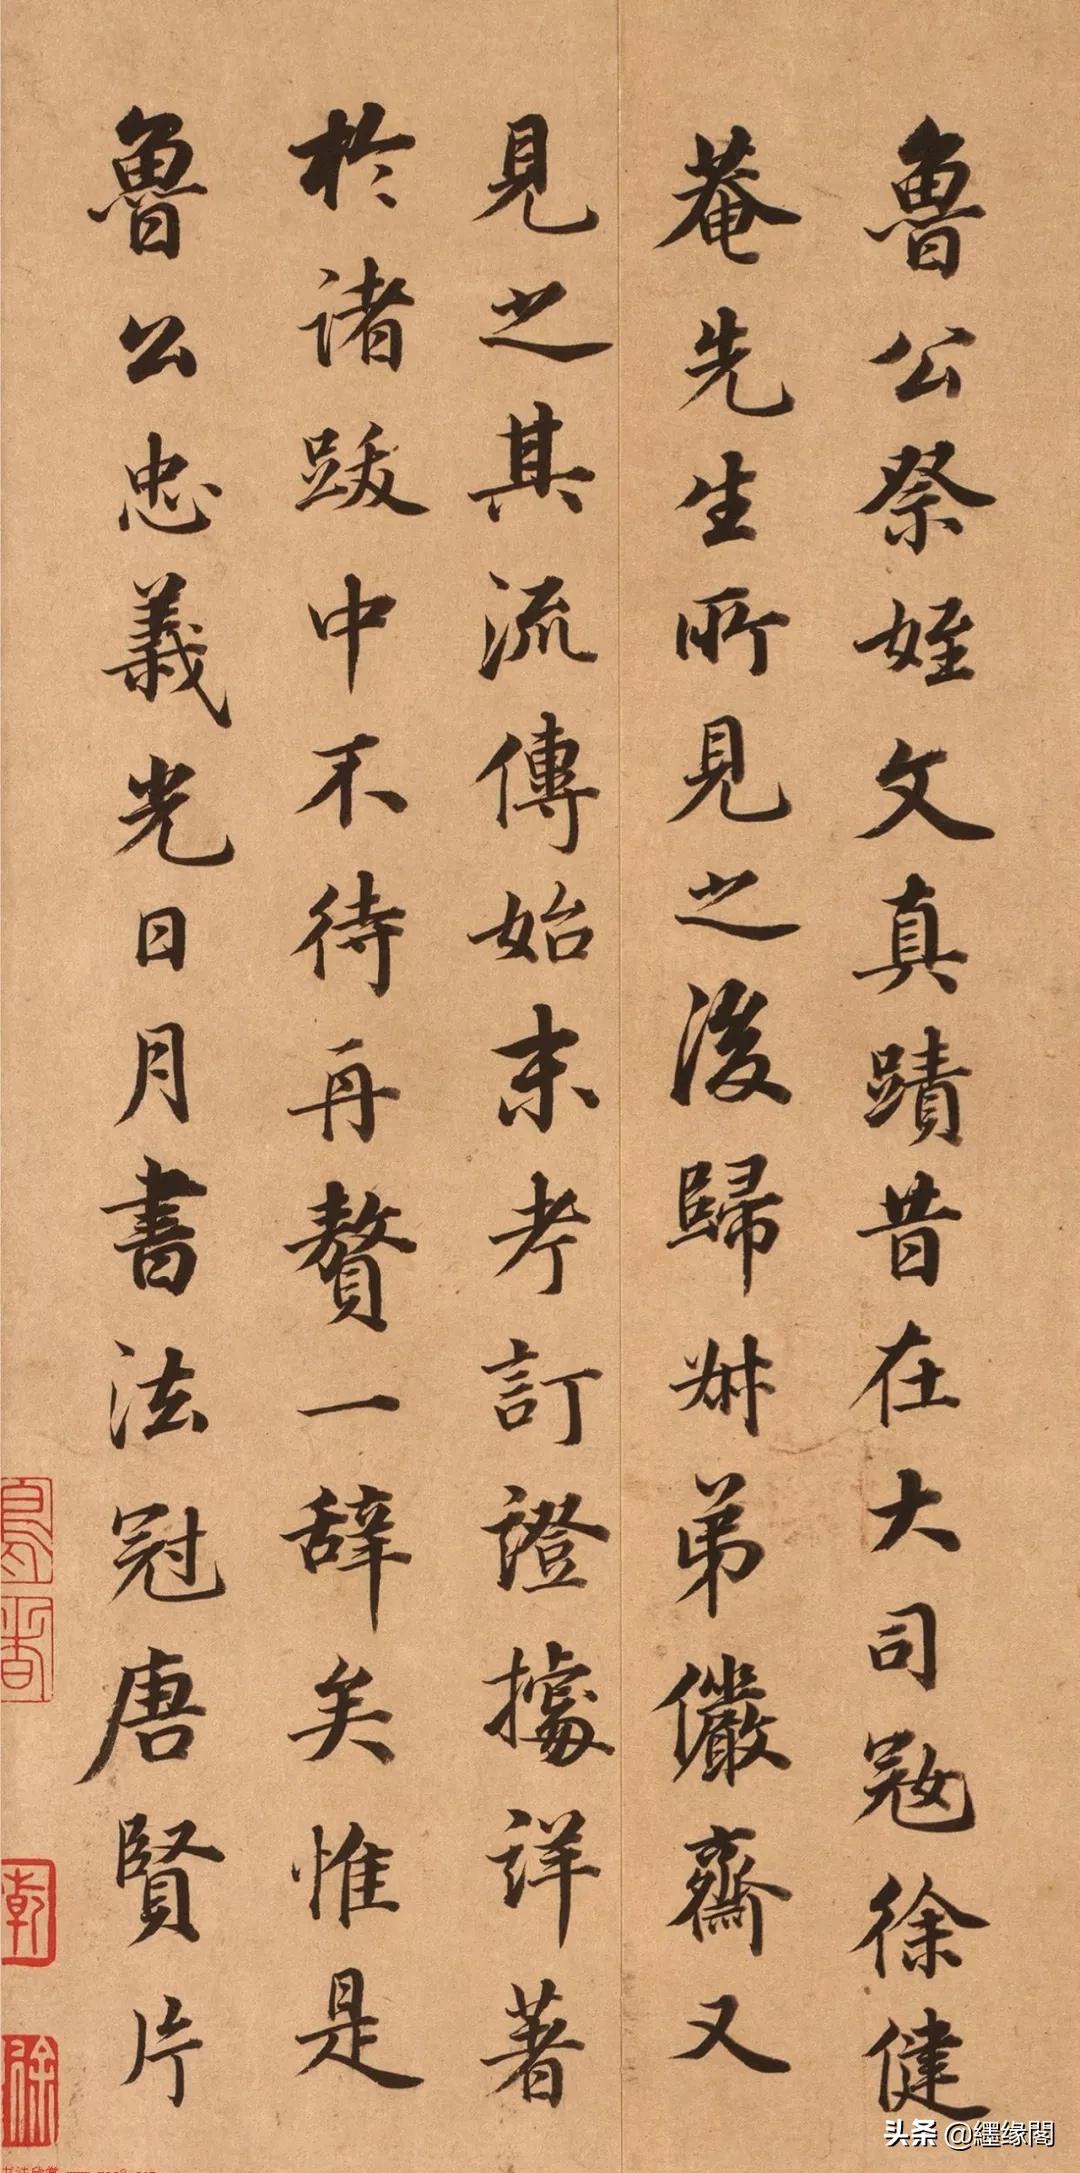 魯公祭姪文真蹟昔在大司寇徐健
菴先生所見之後歸叔弟儼齋又
見之其流傳始末考訂證據詳著
於諸跋中不待再贅一辭矣惟是
魯公忠義光日月書法冠唐賢片
头条 @纆缘閣